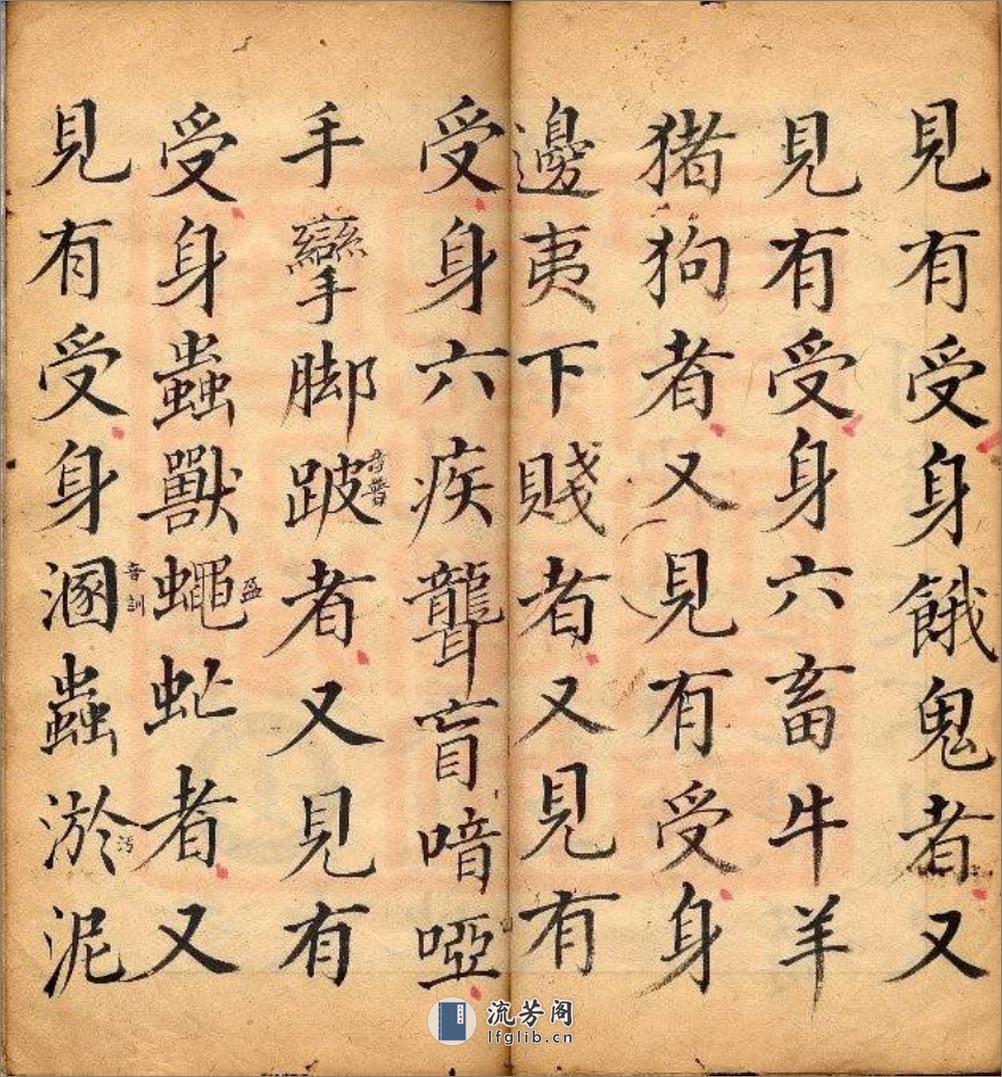 見有受身餓鬼者又
見有受身六畜牛羊
猪狗者又見有受身
邊夷下賤者又見有
受身六疾聾盲喑啞
手攣脚跛音普者又見有
受身蟲獸蠅盈虻者又
見有受身溷音訓蟲淤汚泥
流芳阁
lfglib.cn